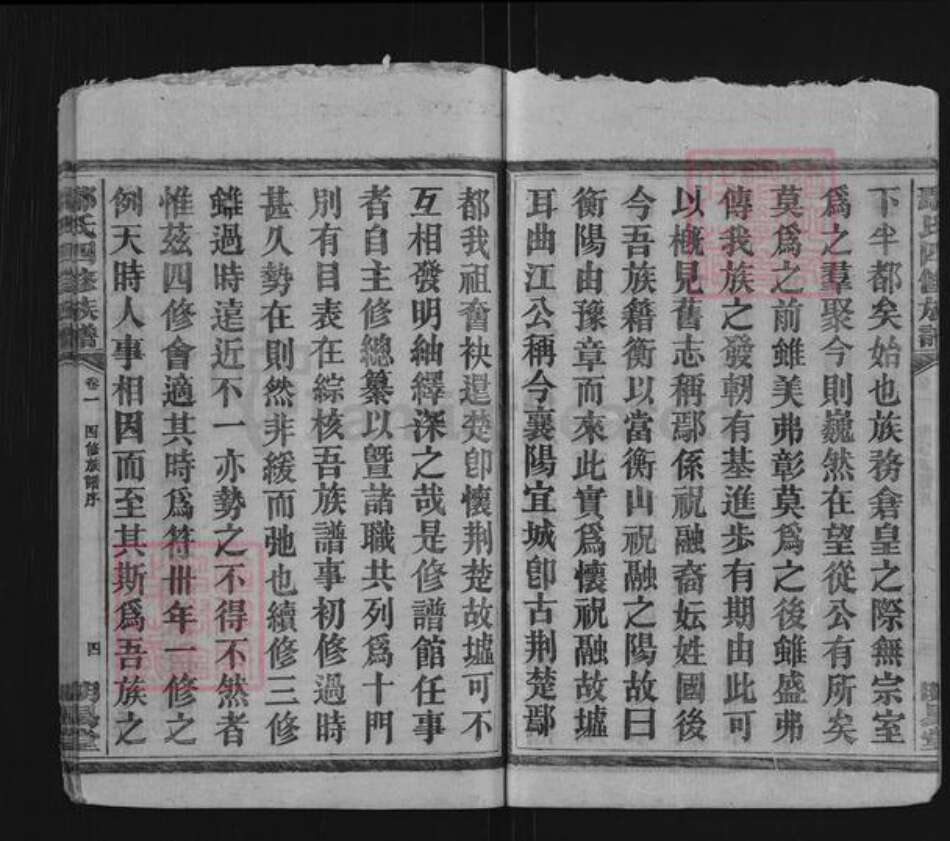 下半都矣始也族務倉皇之際無宗室
爲之羣聚今則巍然在望從公有所矣
莫爲之前雖美弗彰莫爲之後雖盛弗
傳我族之發軔有基進步有期由此可
以概見舊志稱鄢係祝融裔妘姓國後
今吾族籍衡以當衡山祝融之陽故曰
衡陽由豫章而來此實爲懷祝融故墟
耳曲江公稱今襄陽宜城卽古荆楚鄢
都我祖奮袂還楚卽懷荆楚故墟可不
互相發明紬繹深之哉是修譜館任事
者自主修總纂以曁諸職共列爲十門
別有目表在綜核吾族譜事初修過時
甚久勢在則然非緩而弛也續修三修
雖過時遠近不一亦勢之不得不然者
惟茲四修會適其時爲符卌年一修之
例天時人事相因而至其斯爲吾族之
鄢氏四修族譜
卷一
四修族譜序
四